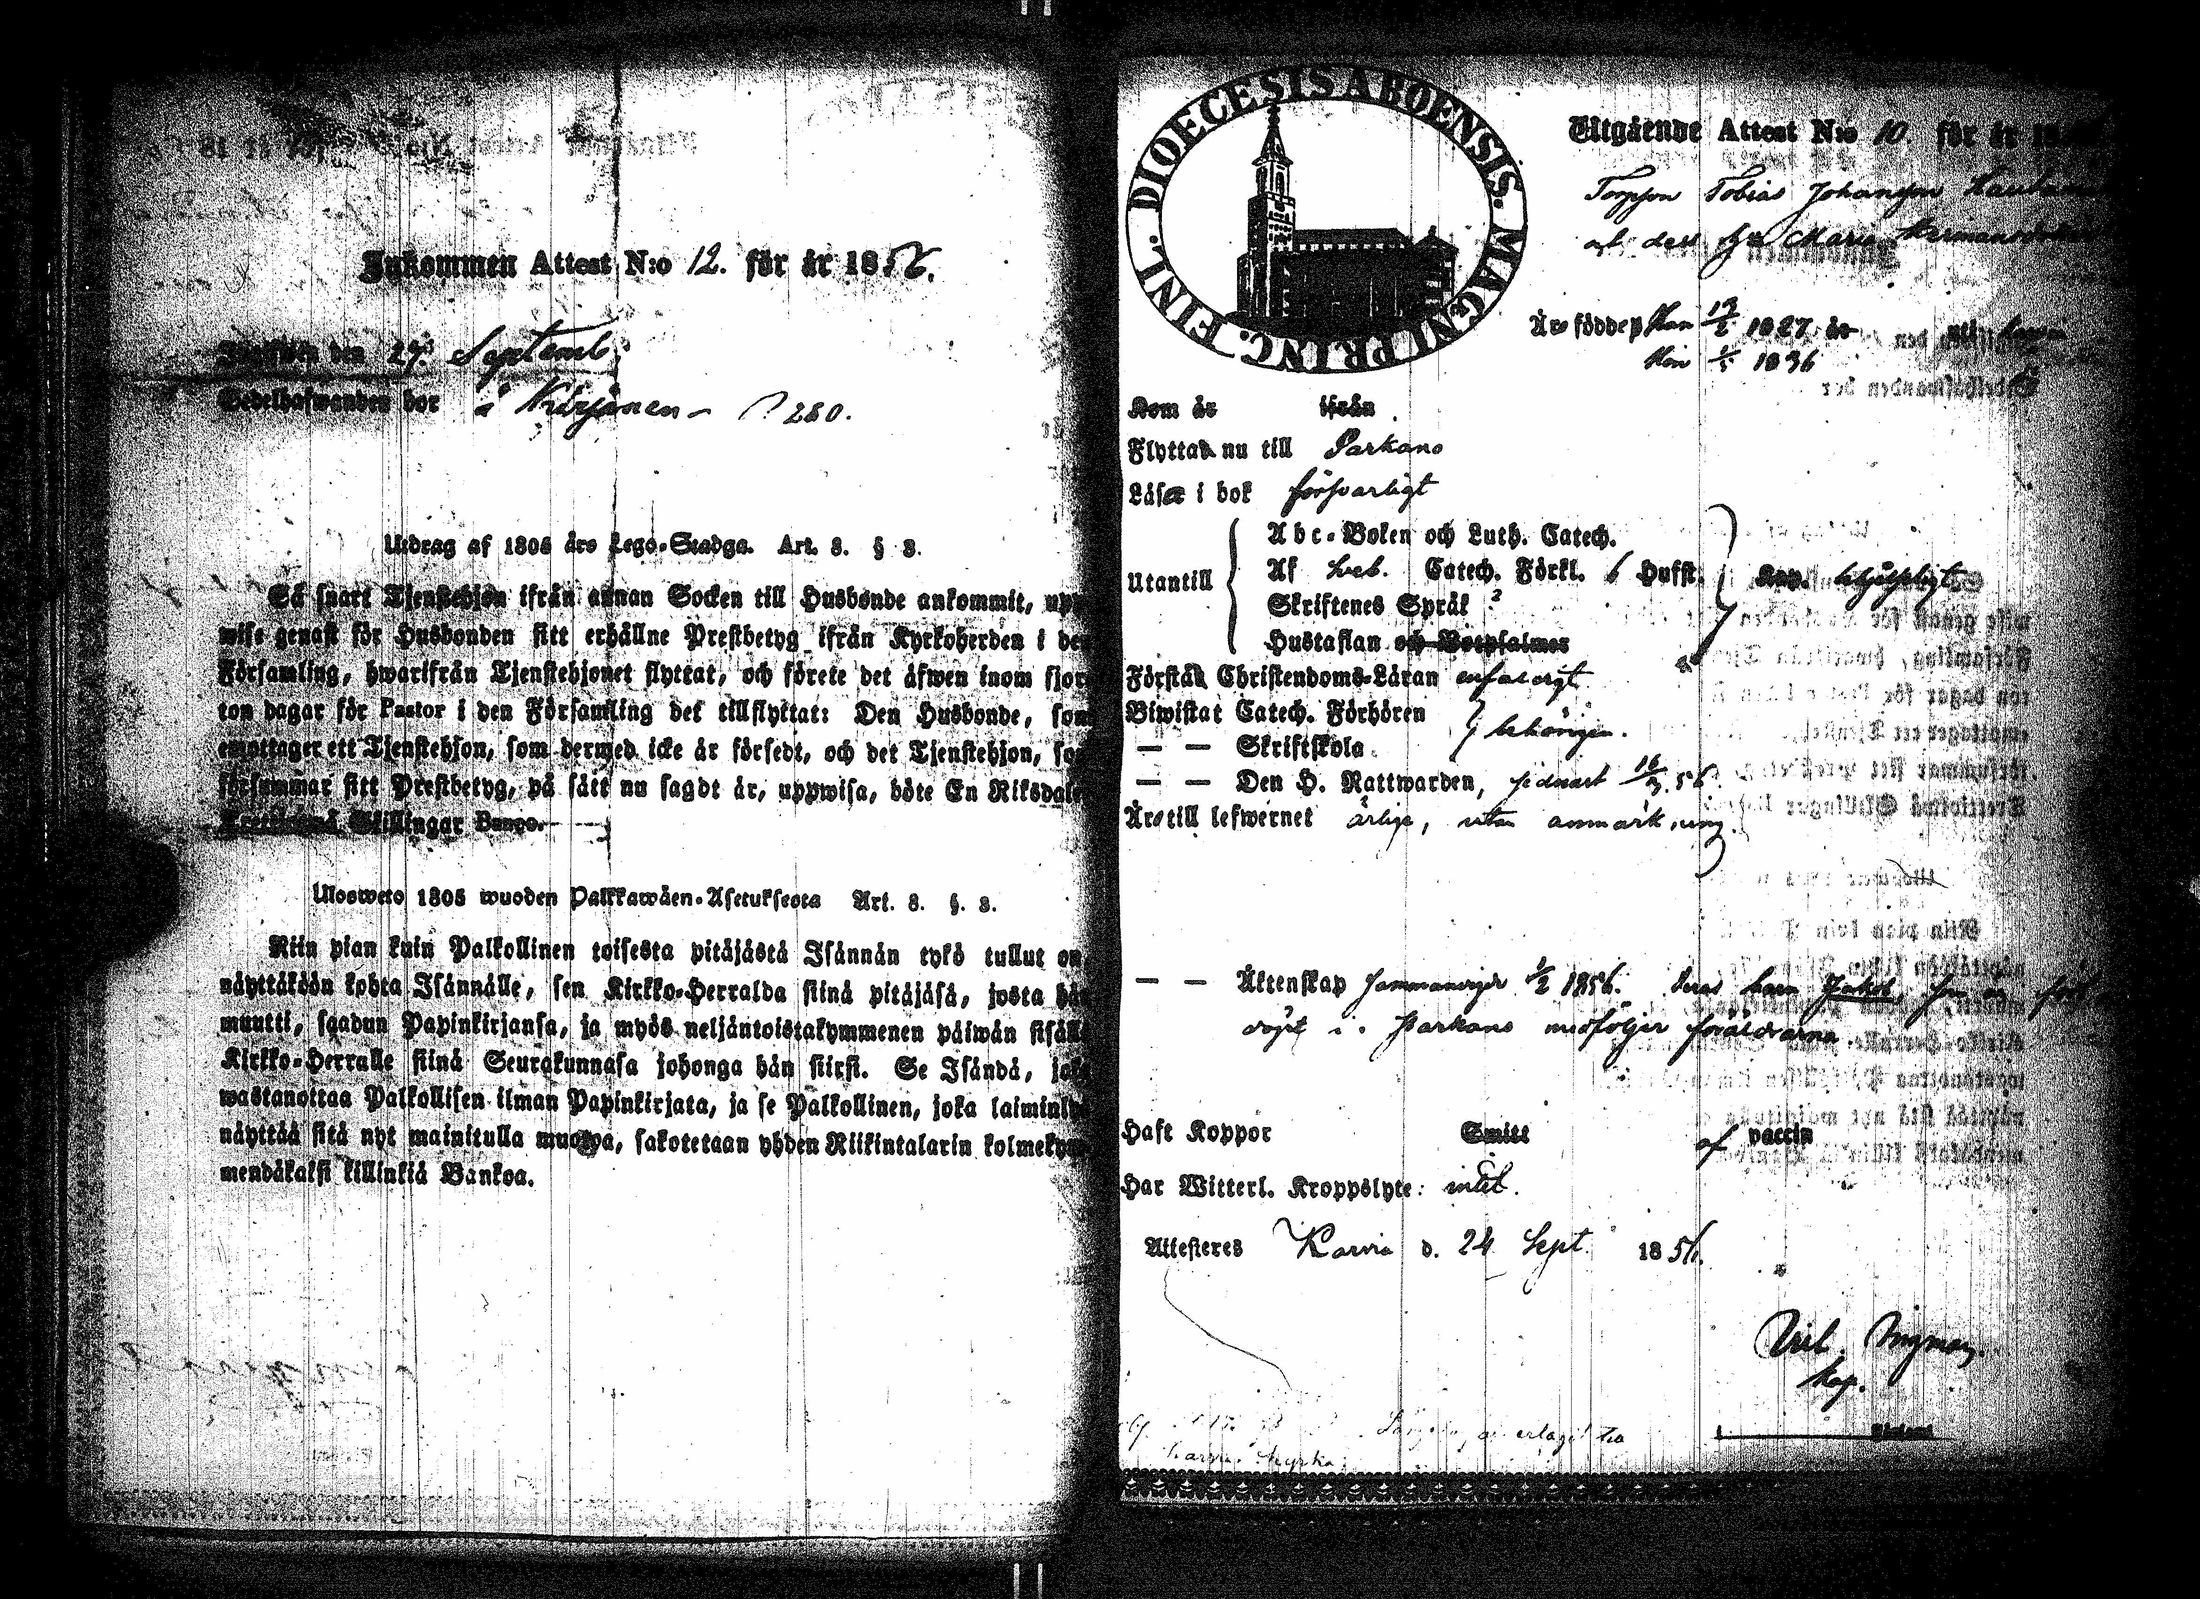 Inkommen Attest N:o 12. för år 1856.
Inskrifwen den 27. Septemb.
Sedelhafwanden bor å Kärjänen – P 280.
Utdrag af 1805 års Lego-Stadga. Art. 8. § 3.
Så snart Tjenstehjon ifrån annan Socken till Husbonde ankommit, upp-
wise genast för Husbonden sitt erhållne Prestbetyg ifrån Kyrkoherden i den
Församling, hwarifrån Tjenstehjonet flyttat, och förete det äfwen inom fjor-
ton dagar för Pastor i den Församling det tillflyttat: Den Husbonde, som
emottager ett Tjenstehjon, som dermed icke är försedt, och det Tjenstehjon, som
försummar sitt Prestbetyg, på sätt nu sagdt är, uppwisa, böte En Riksdaler
Trettiotwå Skillingar Banco.
Uloswero 1805 wuoden Palkkawäen-Asetuksesta Art. 8. §. 3.
Niin pian kuin Palkollinen toisesta pitäjästä Isännän tykö tullut on,
näyttäköön kohta Isännälle, sen Kirkko-Herralda siinä pitäjäsä, josta hän
muutti, saadun Papinkirjansa, ja myös neljäntoistakymmenen päiwän sisällä
Kirkko-Herralle siinä Seurakunnasa johonga hän siirsi. Se Isändä, joka
wastanottaa Palkollisen ilman Papinkirjata, ja se Palkollinen, joka laiminlyö
näyttää sitä nyt mainitulla muotoa, sakotetaan yhden Riikintalarin kolmekym-
mendäkaksi killinkiä Bankoa.
DIOECESIS ABOENSIS. MAGNI PRINC. FINL.
Utgående Attest N:o 10. för år
Torpson Tobias Johansson
och dess h:u Maria Hermansdotter
Äro födde Han 13/2 1827 år
Hon 1/5 1836
Kom år ifrån
Flyttad nu till Parkano
Läser i bok försvarligt
Utantill
Abc-Boken och Luth. Catech.
Af Sveb. Catech. Förkl. 6 Hufst.
Skriftenes Språk
Hustaflan och Botpsalmer
hjelpligt
Förstår Christendoms-Läran enfaldigt
Biwistat Catech. Förhören
— — Skriftskola
behörigen.
— — Den H. Nattwarden, sednast 16/3. 56.
Äro till lefwernet ärlige, utan anmärkning.
— — Äktenskap sammanvigde 1/2 1856. deras barn Jakob,
döpt i Parkano medföljer föräldrarna
Haft Koppor Smitt af vaccin
Har Witterl. Kroppslyte: intet.
Attesteras Karvia d. 24 Sept. 1856.
Vill. Ingman
Kap.